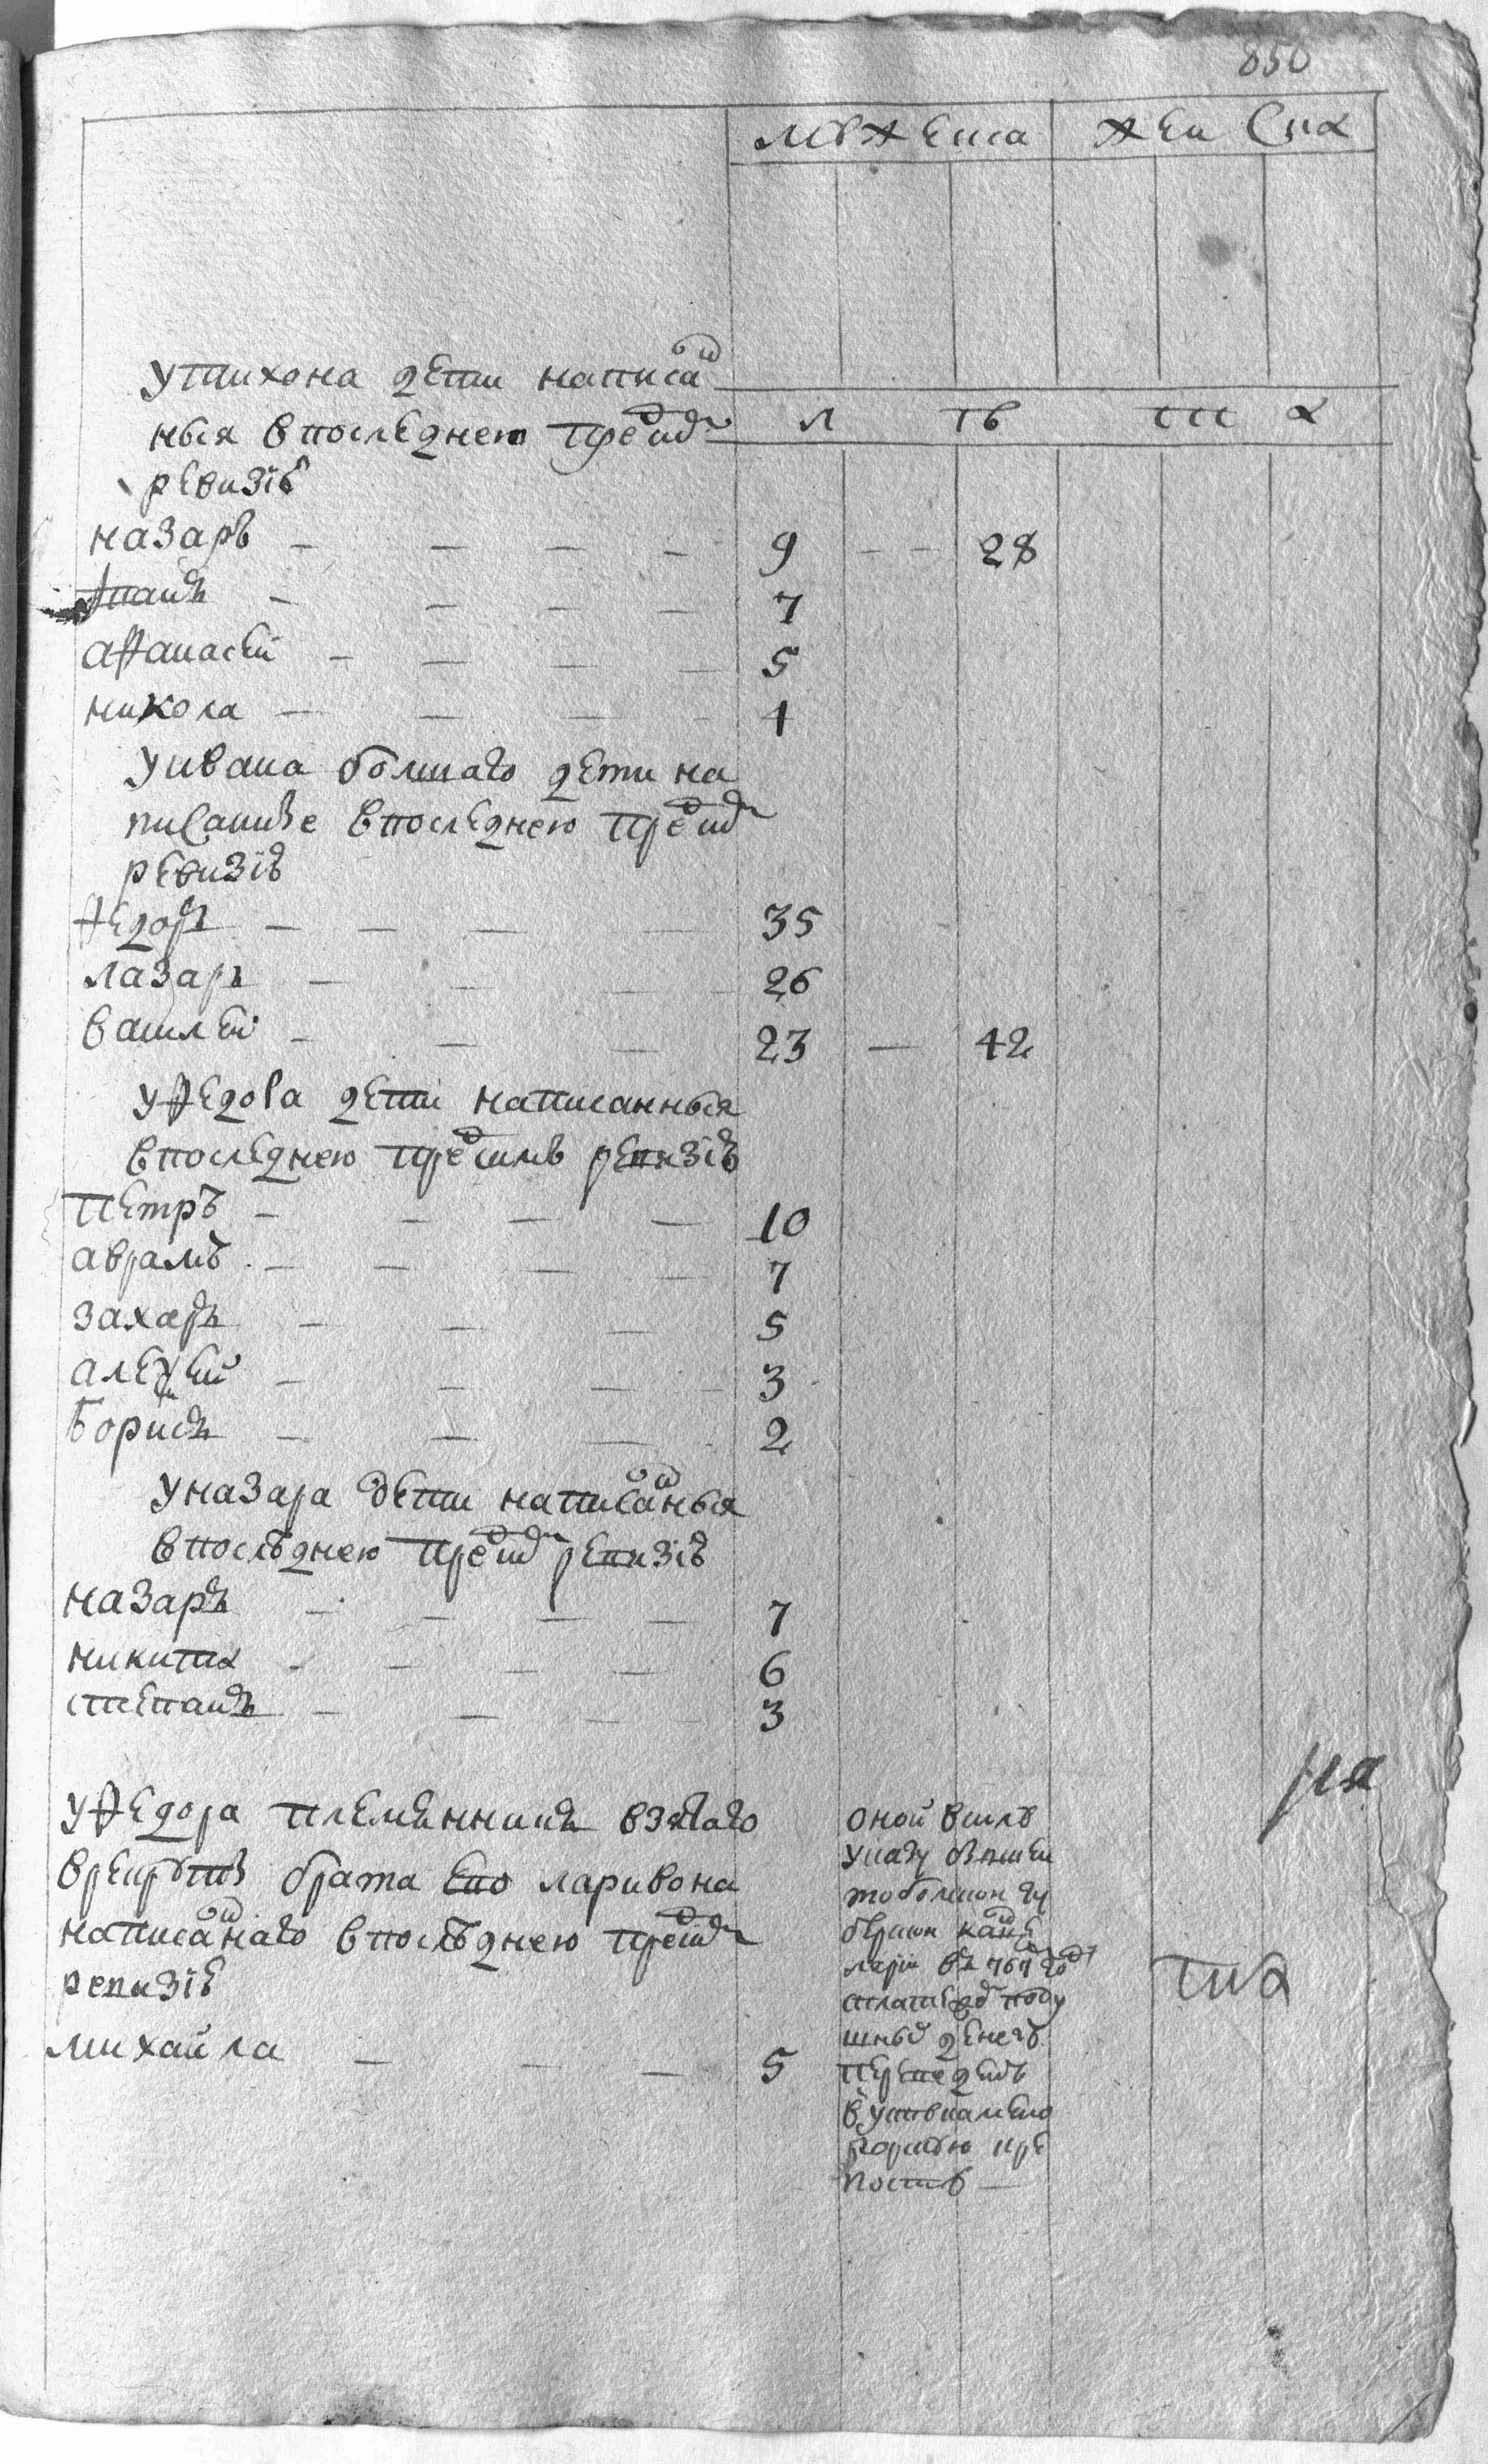 850
мужеска женска
У тихона дети написан
ныя в последнею пред
л т в т а
ревизiѣ
назаръ — — — — 9 — — 28
iпатъ — — — — 7
афанасеи — — — — 5
никола — — — — 1
У ивана болшаго дети на
писаные в последнею пред
ревизiѣ
федоръ — — — — 35
лазарь — — — — 26
василеи — — — 23 — 42
У федора дети написанныя
в последнею пред ревизiѣ
петръ — — — — 10
аврамъ — — — — 7
захаръ — — — 5
алексеи — — — — 3
борисъ — — — 2
У назара дети написанныя
в послѣднею пред ревизiѣ
назаръ — — — — 7
никита — — — — 6
степанъ — — — — 3
У федора племянникъ взятаго
в рекруты брата ево ларивона
написаннаго в послѣднею пред
ревизiѣ
михаила — — — 5
оной в силѣ
указу бывшеи
тоболскои гу
бернскои канце
лярiи въ 767 году
с платежом поду
шных денегъ
переведенъ
в устькаменно
горскую кре
пость —